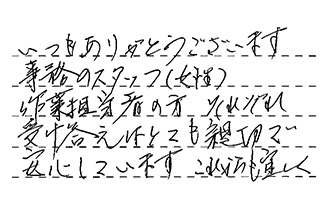 いつもありがとうございます
事務のスタッフ(女性)
作業担当者の方 それぞれ
受け答えはとても親切で
安心しています これからも宜しく